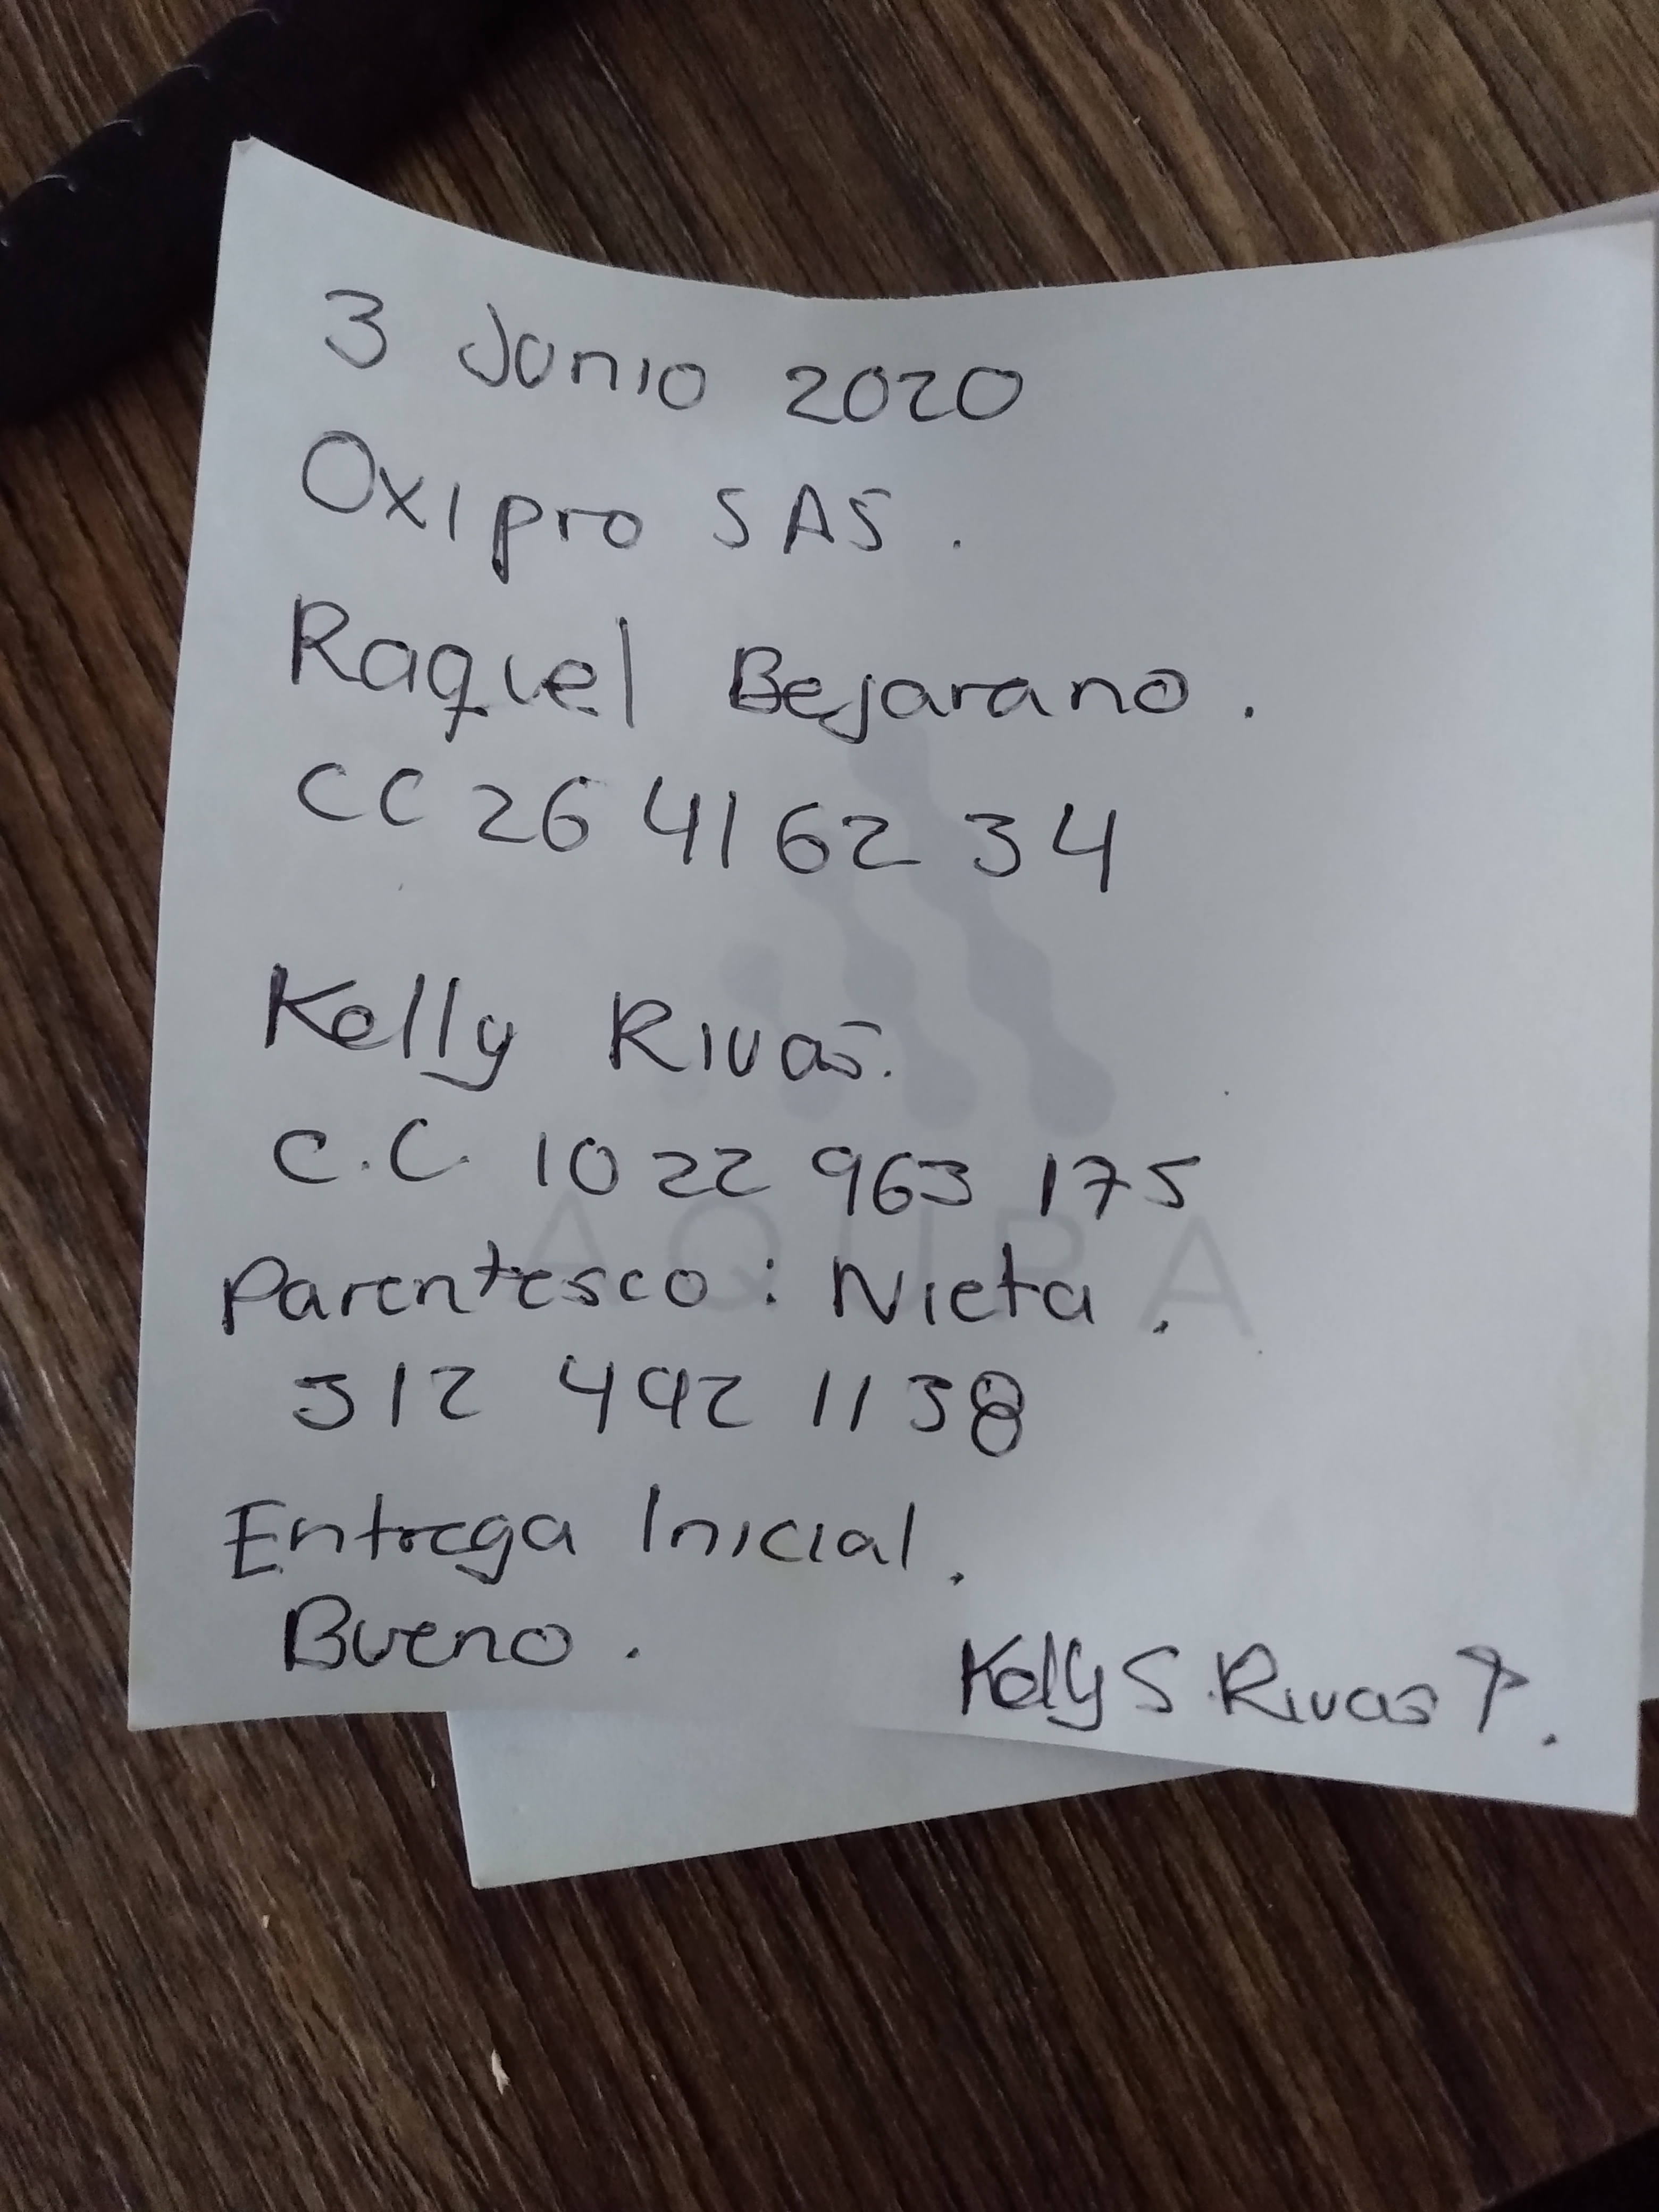 3 Junio 2020
Oxipro SAS.
Raquel Bejarano.
CC 26 41 62 34
Kelly Rivas.
C.C. 1022 963 175
Parentesco: Nieta.
312 492 1138
Entrega Inicial.
Bueno.
Kelly S Rivas P.
AQUPA